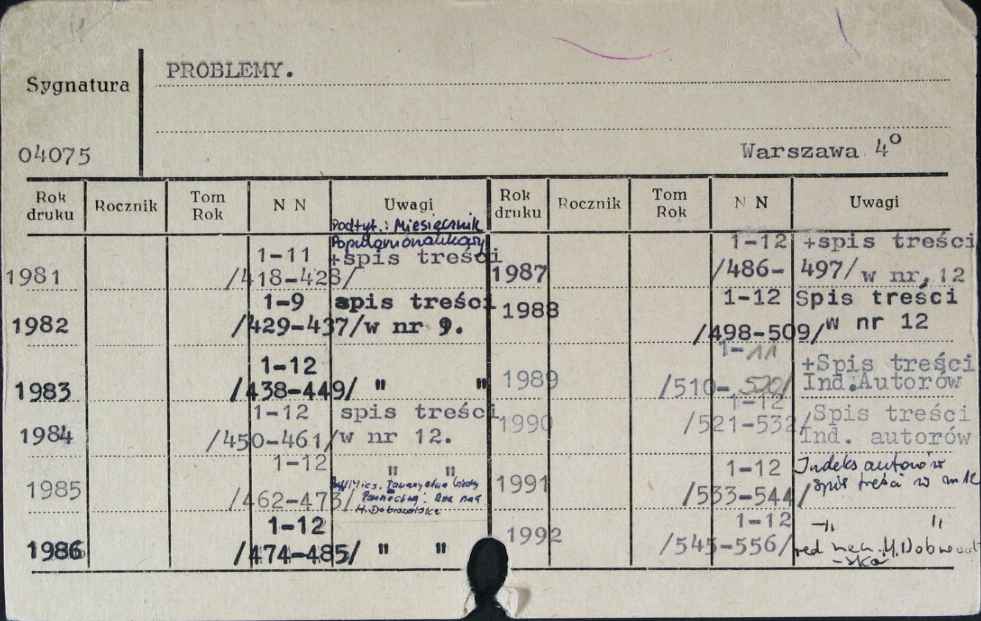 PROBLEMY.
Sygnatura
04075
Warszawa 4°
Rok druku Rocznik Tom Rok N N Uwagi Rok druku Rocznik Tom Rok N N Uwagi
Podtyt.: Miesięcznik
Popularnonaukowy
1981 1-11 +spis treści
/418-428/
1982 1-9 spis treści
/429-437/w nr 9.
1983 1-12
/438-449/ " "
1984 1-12 spis treści
/450-461/w nr 12.
1985 1-12 " "
/462-473/
H. Dobrowolska
1986 1-12
/474-485/ " "
1987 1-12 +spis treści
/486-497/ w nr, 12
1988 1-12 Spis treści
/498-509/w nr 12
1989 1-11 +Spis treści
/510-520/ Ind.Autorów
1990 1-12 Spis treści
/521-532/ Ind. autorów
1991 1-12 Indeks autorów
/533-544/ spis treści w nr 12
1992 1-12 -"- "
/545-556/ red. nacz. H. Dobrowol-
-ska